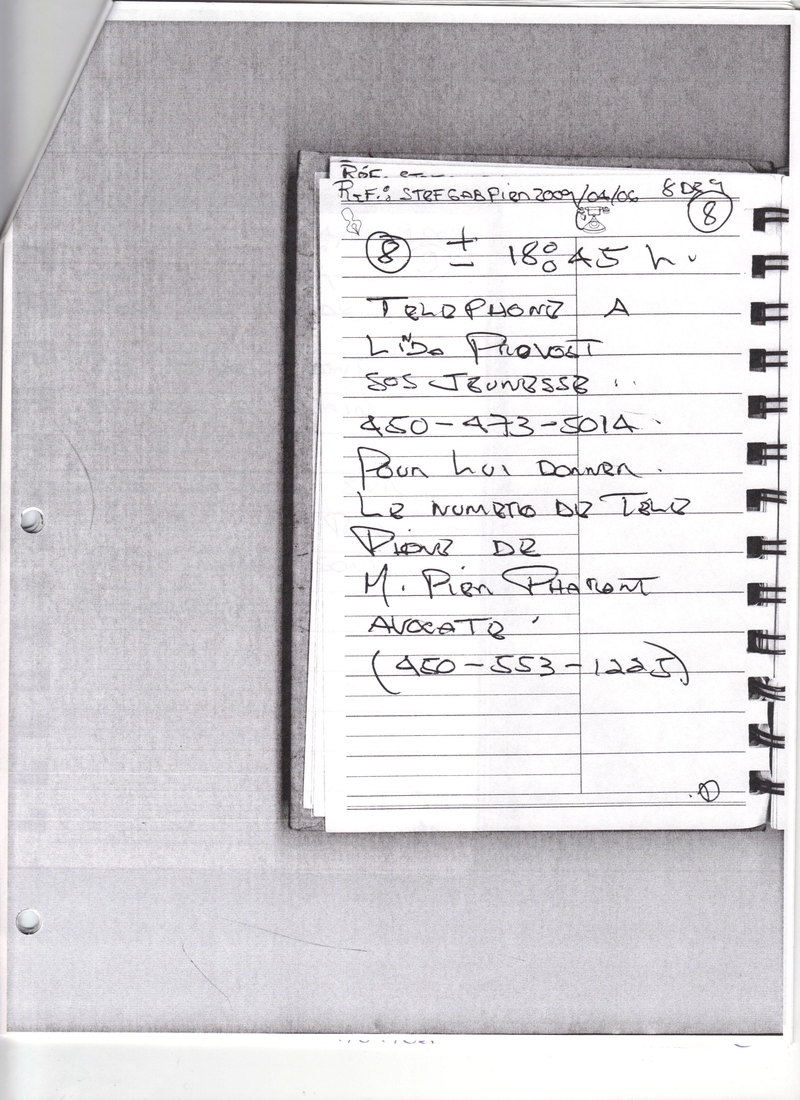 RÉF.
RÉF.: STEFGABPIER 2009/04/06 8 DE 9
8
8 ± 18:45 h.
TELEPHONE A
LiNDA PROVOST
SOS JEUNESSE ..
450-473-5014.
POUR LUI DONNER.
LE NUMERO DE TELE
PHONE DE
M. PiER PHARENT
AVOCATE
(450-553-1225)
1